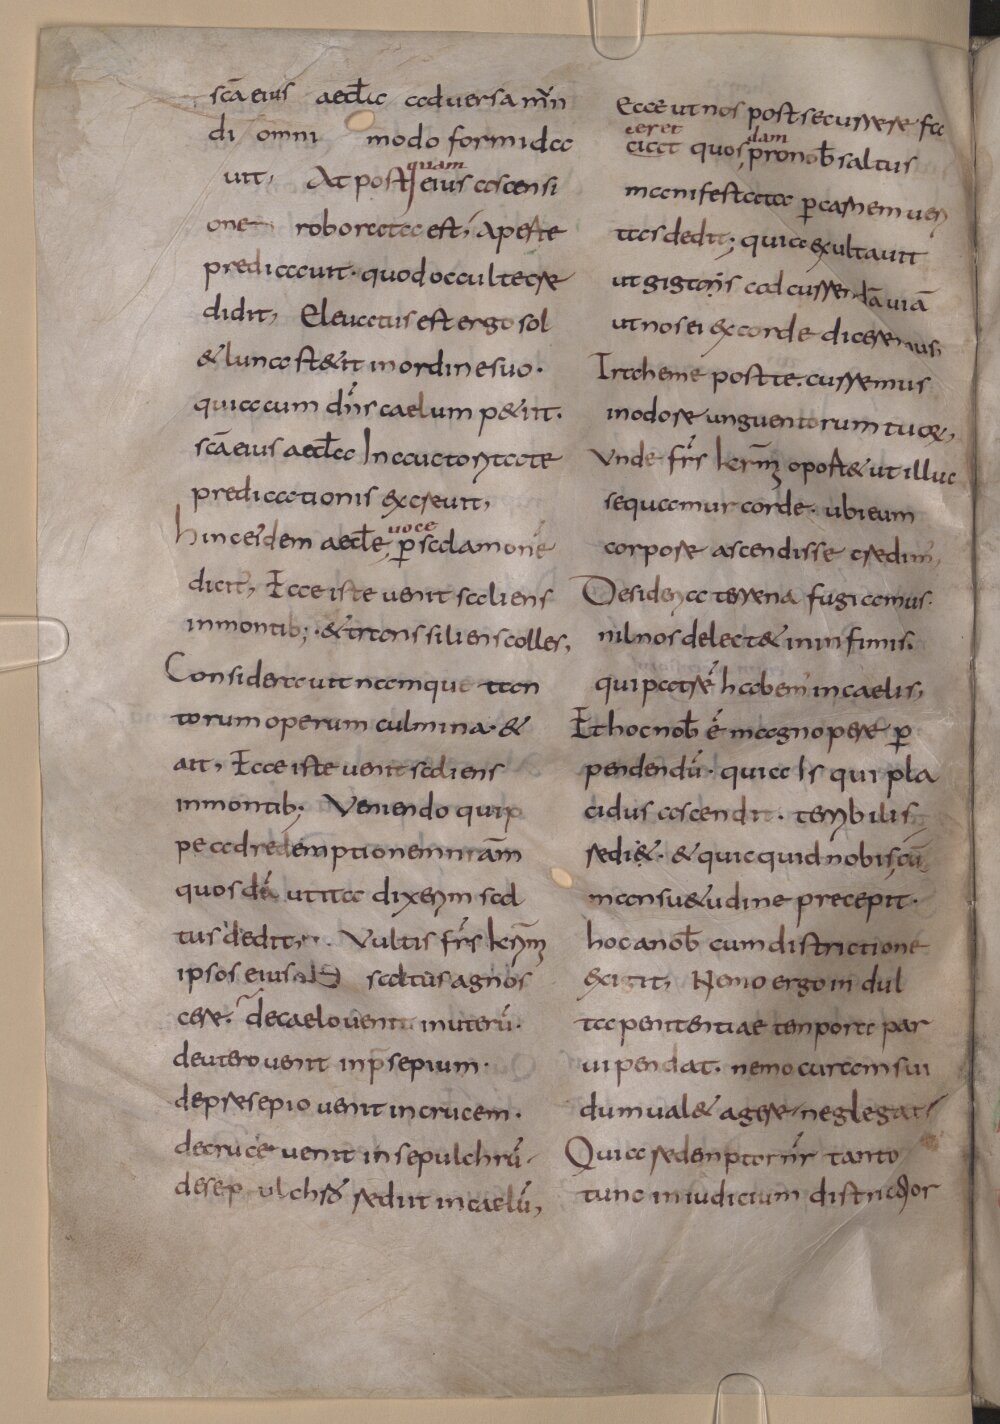 scā eius aecɫa adversa mūn
di omni modo formida
uit, At postquam eius ascensi
one roborata est, aperte
predicauit· quod occulte cre
didit, Eleuatus est ergo sol
& luna st&it in ordine suo·
quia cum dn̄s caelum p&iit·
scā eius aecɫa In auctoritate
predicationis excreuit,
hinc eiusdem aecɫe, uoce p̱ salamonē
dicit, Ecce iste uenit saliens
in montib; · & transsiliens colles,
Considerauit namque tan
torum operum culmina· &
ait, Ecce iste uenit saliens
in montib; Veniendo quip
pe ad redemptionem nr̄am
quosdā ut ita dixerim sal
tus dedit, Vultis fr̄s kr̄m
ipsos eius saltus agnos
cere· de caelo uenit in uterū·
de utero uenit in p̄sepium·
de presepio uenit in crucem·
de cruce uenit in sepulchrū·
de sepulchro rediit in caelū,
Ecce ut nos post se currere fa
ceret quosdam pro nob̄ saltus
manifestata p̱ carnem ueri
tas dedit; quia exultauit
ut gigans ad currendā uiā
ut nos ei ex corde diceremus,
Trahe me post te· curremus
in odore unguentorum tuorum,
Vnde fr̄s kr̄m oport& ut illuc
sequamur corde· ubi eum
corpore ascendisse credim̄,
Desideria terrena fugiamus·
nil nos delect& in infimis·
qui patrē habem̄ in caelis,
Et hoc nob̄ ē magnopere p̱
pendendū· quia Is qui pla
cidus ascendit· terribilis
redi&· & quicquid nobis cū
mansu&udine precepit·
hoc a nob̄ cum districtione
exigit, Nemo ergo indul
ta penitentiae tempora par
ui pendat· nemo curam sui
dum ual& agere neglegat
Quia redemptor nr̄ tanto
tunc in iudicium districtior